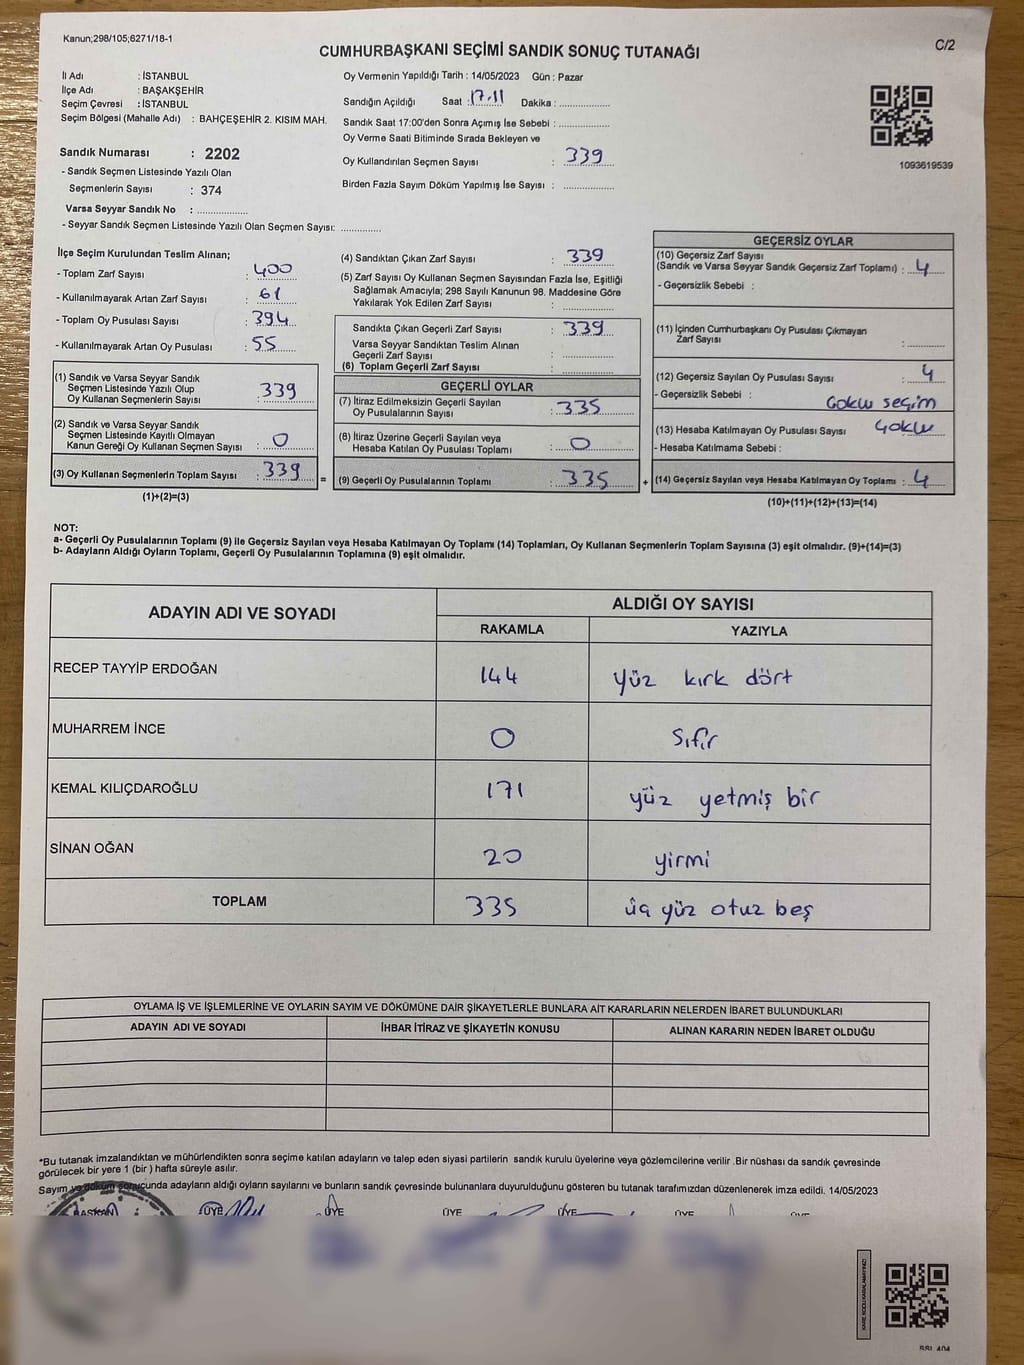 Kanun;298/105;6271/18-1
C/2
CUMHURBAŞKANI SEÇİMİ SANDIK SONUÇ TUTANAĞI
İl Adı : İSTANBUL
İlçe Adı : BAŞAKŞEHİR
Seçim Çevresi : İSTANBUL
Seçim Bölgesi (Mahalle Adı) : BAHÇEŞEHİR 2. KISIM MAH.
Sandık Numarası : 2202
- Sandık Seçmen Listesinde Yazılı Olan
Seçmenlerin Sayısı : 374
Varsa Seyyar Sandık No : ..................
- Seyyar Sandık Seçmen Listesinde Yazılı Olan Seçmen Sayısı: ..............
Oy Vermenin Yapıldığı Tarih : 14/05/2023 Gün : Pazar
Sandığın Açıldığı Saat : 17.11 Dakika : ..................
Sandık Saat 17:00'den Sonra Açımış İse Sebebi : ..................
Oy Verme Saati Bitiminde Sırada Bekleyen ve
Oy Kullandırılan Seçmen Sayısı : 339
Birden Fazla Sayım Döküm Yapılmış İse Sayısı : ..................
1093619539
İlçe Seçim Kurulundan Teslim Alınan;
- Toplam Zarf Sayısı : 400
- Kullanılmayarak Artan Zarf Sayısı : 61
- Toplam Oy Pusulası Sayısı : 394
- Kullanılmayarak Artan Oy Pusulası : 55
(1) Sandık ve Varsa Seyyar Sandık
Seçmen Listesinde Yazılı Olup
Oy Kullanan Seçmenlerin Sayısı : 339
(2) Sandık ve Varsa Seyyar Sandık
Seçmen Listesinde Kayıtlı Olmayan
Kanun Gereği Oy Kullanan Seçmen Sayısı : 0
(3) Oy Kullanan Seçmenlerin Toplam Sayısı : 339
(1)+(2)=(3)
=
(4) Sandıktan Çıkan Zarf Sayısı : 339
(5) Zarf Sayısı Oy Kullanan Seçmen Sayısından Fazla İse, Eşitliği
Sağlamak Amacıyla; 298 Sayılı Kanunun 98. Maddesine Göre
Yakılarak Yok Edilen Zarf Sayısı : ..................
Sandıkta Çıkan Geçerli Zarf Sayısı : 339
Varsa Seyyar Sandıktan Teslim Alınan
Geçerli Zarf Sayısı : ..................
(6) Toplam Geçerli Zarf Sayısı : ..................
GEÇERLİ OYLAR
(7) İtiraz Edilmeksizin Geçerli Sayılan
Oy Pusulalarının Sayısı : 335
(8) İtiraz Üzerine Geçerli Sayılan veya
Hesaba Katılan Oy Pusulası Toplamı : 0
(9) Geçerli Oy Pusulalarının Toplamı : 335
+
GEÇERSİZ OYLAR
(10) Geçersiz Zarf Sayısı
(Sandık ve Varsa Seyyar Sandık Geçersiz Zarf Toplamı) : 4
- Geçersizlik Sebebi :
(11) İçinden Cumhurbaşkanı Oy Pusulası Çıkmayan
Zarf Sayısı : ............
(12) Geçersiz Sayılan Oy Pusulası Sayısı : 4
- Geçersizlik Sebebi : Çoklu seçim
(13) Hesaba Katılmayan Oy Pusulası Sayısı Çoklu
- Hesaba Katılmama Sebebi :
(14) Geçersiz Sayılan veya Hesaba Katılmayan Oy Toplamı : 4
(10)+(11)+(12)+(13)=(14)
NOT:
a- Geçerli Oy Pusulalarının Toplamı (9) ile Geçersiz Sayılan veya Hesaba Katılmayan Oy Toplamı (14) Toplamları, Oy Kullanan Seçmenlerin Toplam Sayısına (3) eşit olmalıdır. (9)+(14)=(3)
b- Adayların Aldığı Oyların Toplamı, Geçerli Oy Pusulalarının Toplamına (9) eşit olmalıdır.
ADAYIN ADI VE SOYADI
ALDIĞI OY SAYISI
RAKAMLA YAZIYLA
RECEP TAYYİP ERDOĞAN 144 yüz kırk dört
MUHARREM İNCE 0 sıfır
KEMAL KILIÇDAROĞLU 171 yüz yetmiş bir
SİNAN OĞAN 20 yirmi
TOPLAM 335 üç yüz otuz beş
OYLAMA İŞ VE İŞLEMLERİNE VE OYLARIN SAYIM VE DÖKÜMÜNE DAİR ŞİKAYETLERLE BUNLARA AİT KARARLARIN NELERDEN İBARET BULUNDUKLARI
ADAYIN ADI VE SOYADI İHBAR İTİRAZ VE ŞİKAYETİN KONUSU ALINAN KARARIN NEDEN İBARET OLDUĞU
*Bu tutanak imzalandıktan ve mühürlendikten sonra seçime katılan adayların ve talep eden siyasi partilerin sandık kurulu üyelerine veya gözlemcilerine verilir .Bir nüshası da sandık çevresinde
görülecek bir yere 1 (bir ) hafta süreyle asılır.
Sayım ve döküm sonucunda adayların aldığı oyların sayılarını ve bunların sandık çevresinde bulunanlara duyurulduğunu gösteren bu tutanak tarafımızdan düzenlenerek imza edildi. 14/05/2023
BAŞKAN ÜYE ÜYE ÜYE ÜYE ÜYE ÜYE